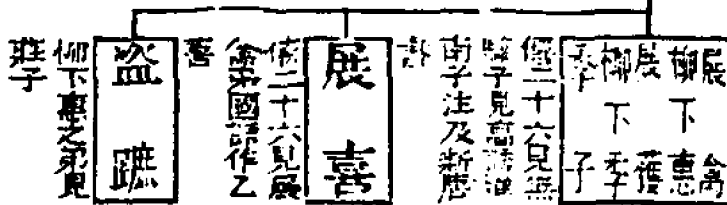 展禽
柳下惠
展獲
柳下季
季子
僖二十六見無
駭子見高誘淮
南子注及新唐
展喜
僖二十六見展
禽弟國語作乙
喜
盜蹠
柳下惠之弟見
莊子